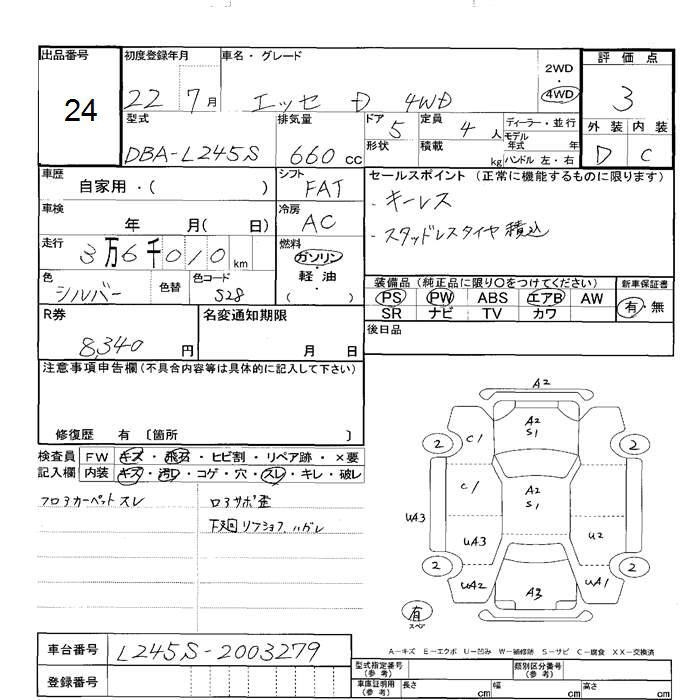 出品番号
24
初度登録年月
22 7月
車名・グレード
エッセ D 4WD
2WD
4WD
評価点
3
外装 内装
D C
型式
DBA-L245S
排気量
660 cc
ドア 5
形状
定員 4 人
積載 kg
ディーラー・並行
モデル
年式 年
ハンドル 左・右
車歴
自家用・( )
シフト
FAT
セールスポイント (正常に機能するものに限ります)
・キーレス
・スタッドレスタイヤ積込
車検
年 月( 日)
冷房
AC
走行
3万6千010 km
燃料
ガソリン
・
軽油
( )
色
シルバー
色替
色コード
S28
装備品 (純正品に限り〇をつけてください)
PS PW ABS エアB AW
SR ナビ TV カワ
新車保証書
有・無
R券
8,340 円
名変通知期限
月 日
後日品
注意事項申告欄 (不具合内容等は具体的に記入して下さい)
修復歴 有 〔箇所 〕
検査員 FW キズ・飛石・ヒビ割・リペア跡・×要
記入欄 内装 キズ・汚レ・コゲ・穴・スレ・キレ・破レ
フロアカーペットスレ
ロアサポ歪
下廻リフショフ.ハガレ
A2
A2
S1
2
C1
2
C1
A2
S1
UA3
UA3
U2
2
2
UA2
A3
UA1
有
スペア
A－キズ E－エクボ U－凹み W－補修跡 S－サビ C－腐食 XX－交換済
車台番号
L245S-2003279
登録番号
型式指定番号
(参考)
類別区分番号
(参考)
車庫証明用
(参考)
長さ cm 幅 cm 高さ cm